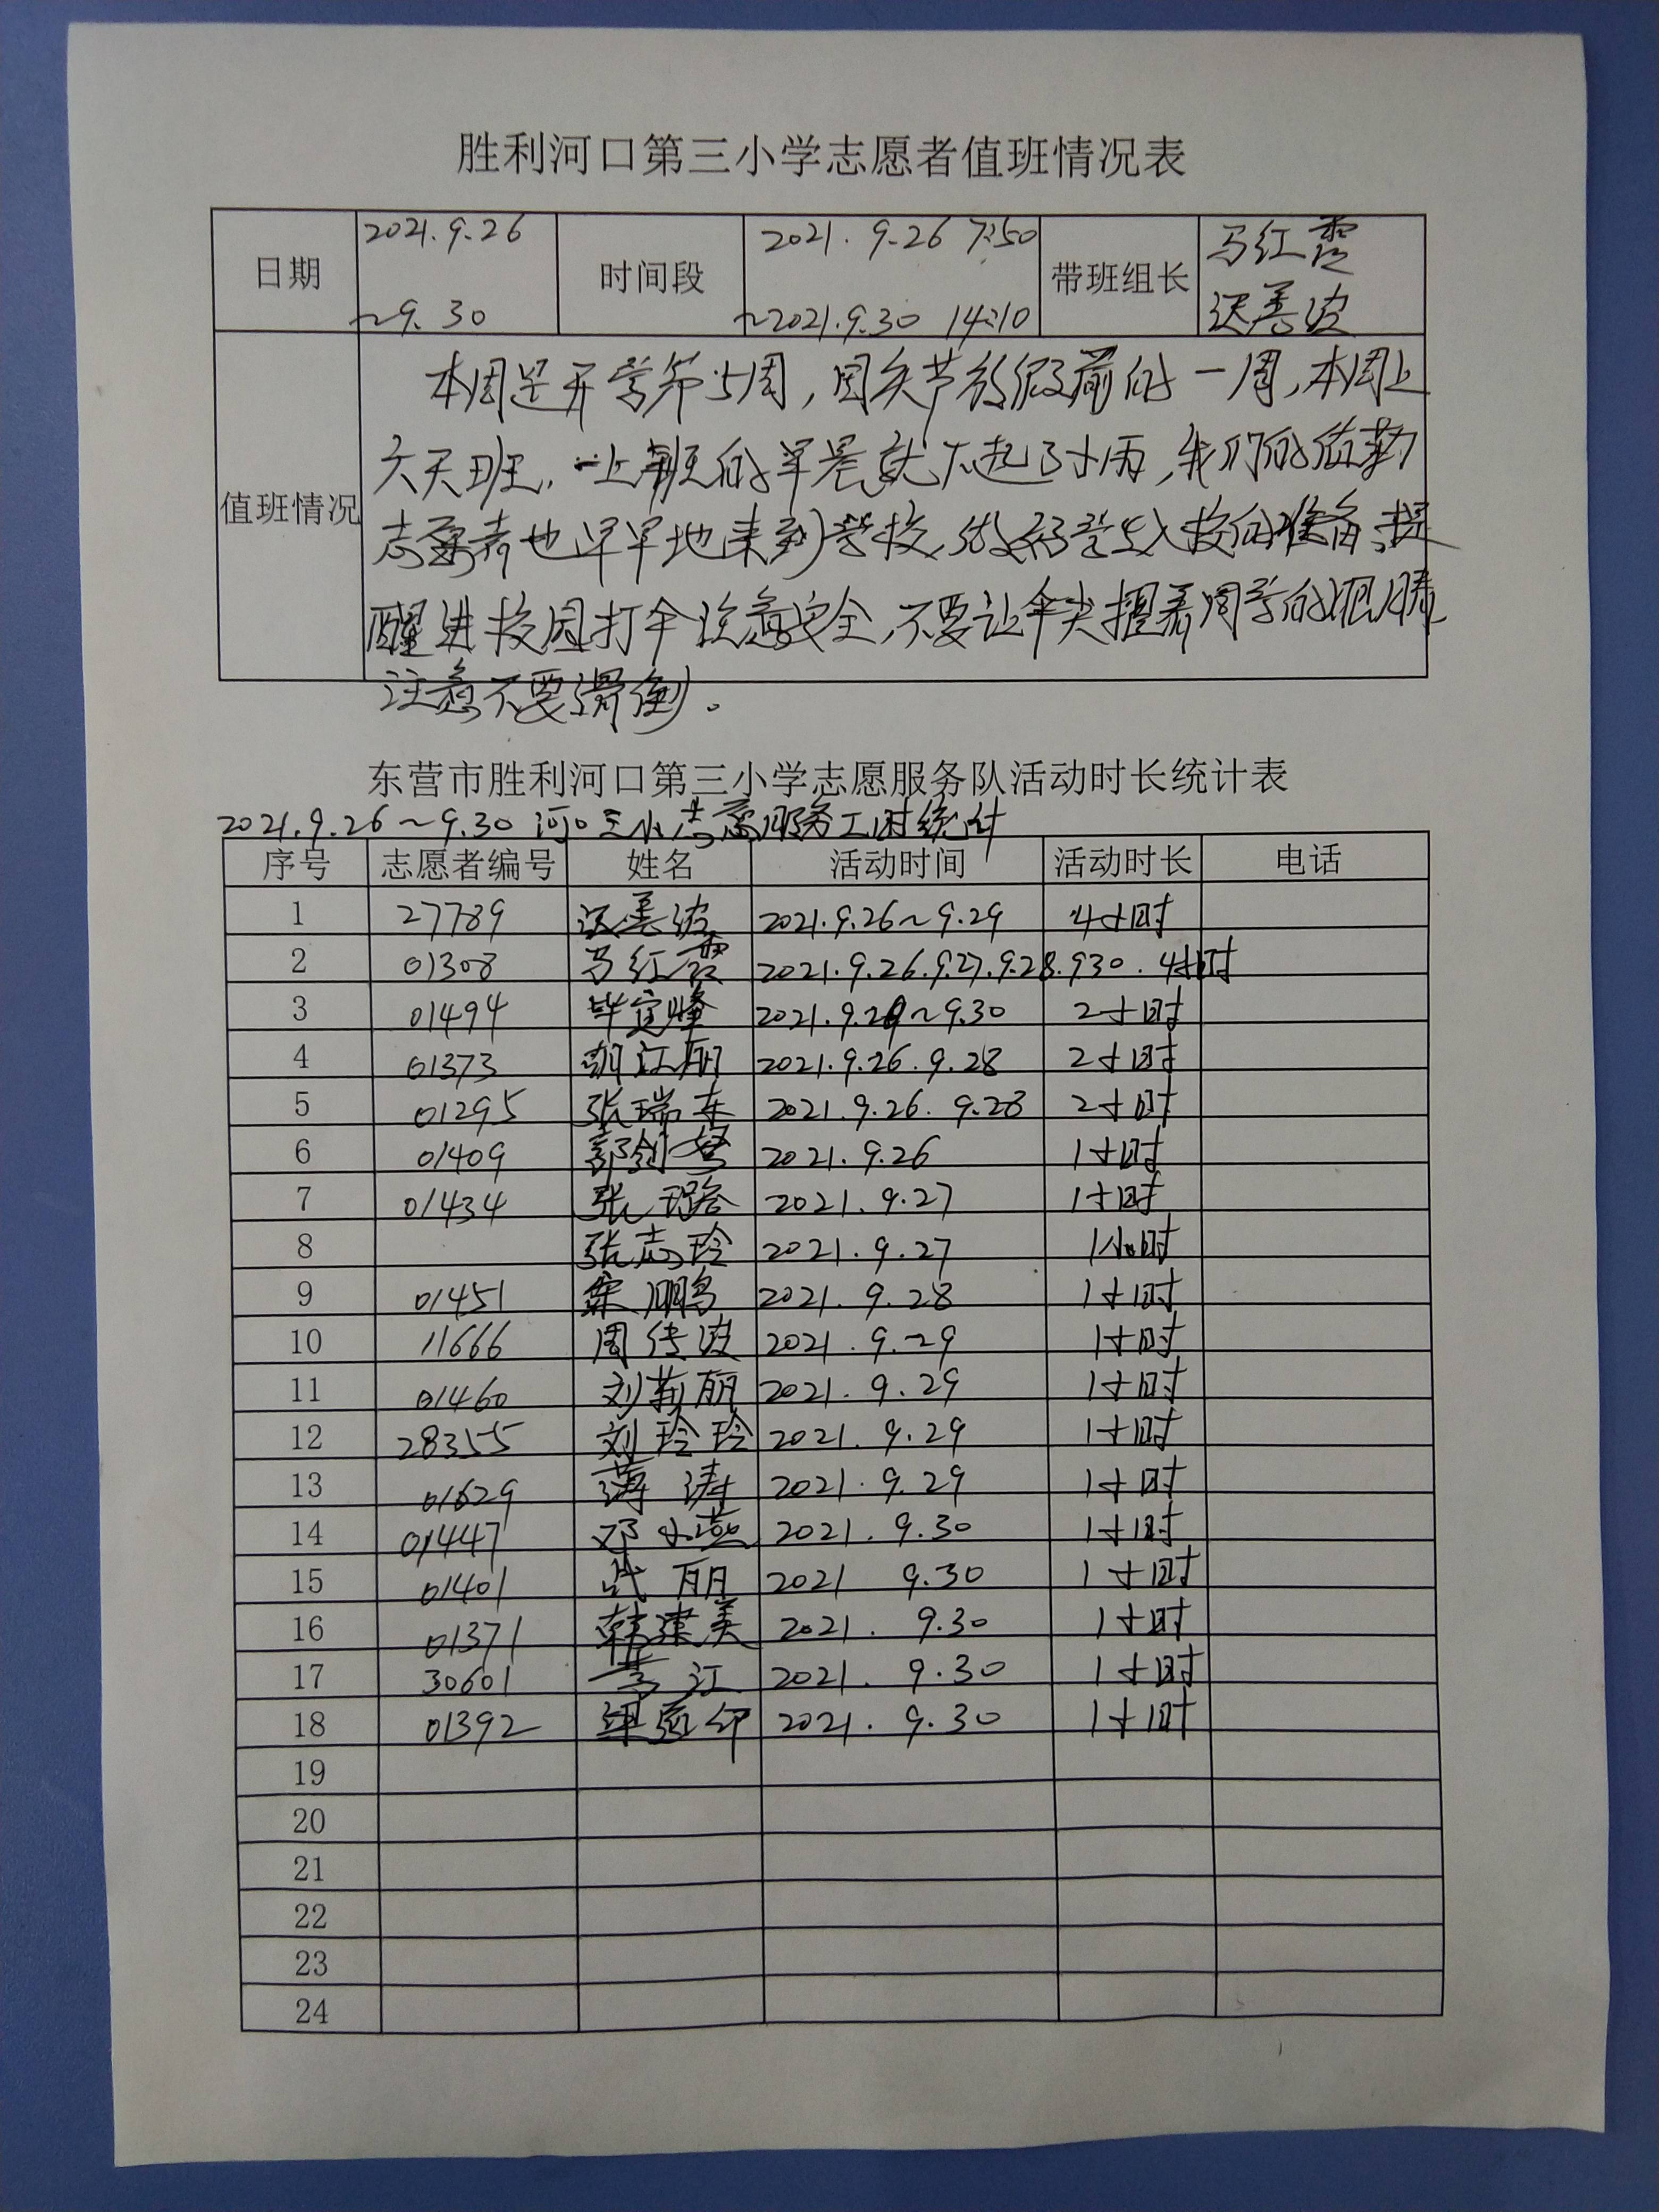 胜利河口第三小学志愿者值班情况表
日期 2021.9.26 ~9.30 时间段 2021.9.26 7:50 ~2021.9.30 14:10 带班组长 马红霞 迟善波
值班情况
本周是开学第5周,国庆节放假前的一周,本周上
六天班,一上班的早晨就下起了小雨,我们的值勤
志愿者也早早地来到学校,做好学生入校的准备,提
醒进校园打伞注意安全,不要让伞尖撞着同学的眼睛
注意不要滑倒。
东营市胜利河口第三小学志愿服务队活动时长统计表
2021.9.26~9.30 河口三小志愿服务工时统计
序号 志愿者编号 姓名 活动时间 活动时长 电话
1 27789 迟善波 2021.9.26~9.29 4小时
2 01308 马红霞 2021.9.26.9.27.9.28.9.30. 4小时
3 01494 毕定峰 2021.9.29~9.30 2小时
4 01373 江丽 2021.9.26.9.28 2小时
5 01295 张瑞东 2021.9.26. 9.28 2小时
6 01409 郭剑 2021.9.26 1小时
7 01434 张璐 2021.9.27 1小时
8 张志玲 2021.9.27 1小时
9 01451 鹏 2021.9.28 1小时
10 11666 周传波 2021.9.29 1小时
11 01460 刘莉丽 2021.9.29 1小时
12 28355 刘玲玲 2021.9.29 1小时
13 01629 薄涛 2021.9.29 1小时
14 01447 邓小燕 2021.9.30 1小时
15 01401 武丽 2021 9.30 1小时
16 01371 韩建美 2021. 9.30 1小时
17 30601 江 2021. 9.30 1小时
18 01392 2021. 9.30 1小时
19
20
21
22
23
24